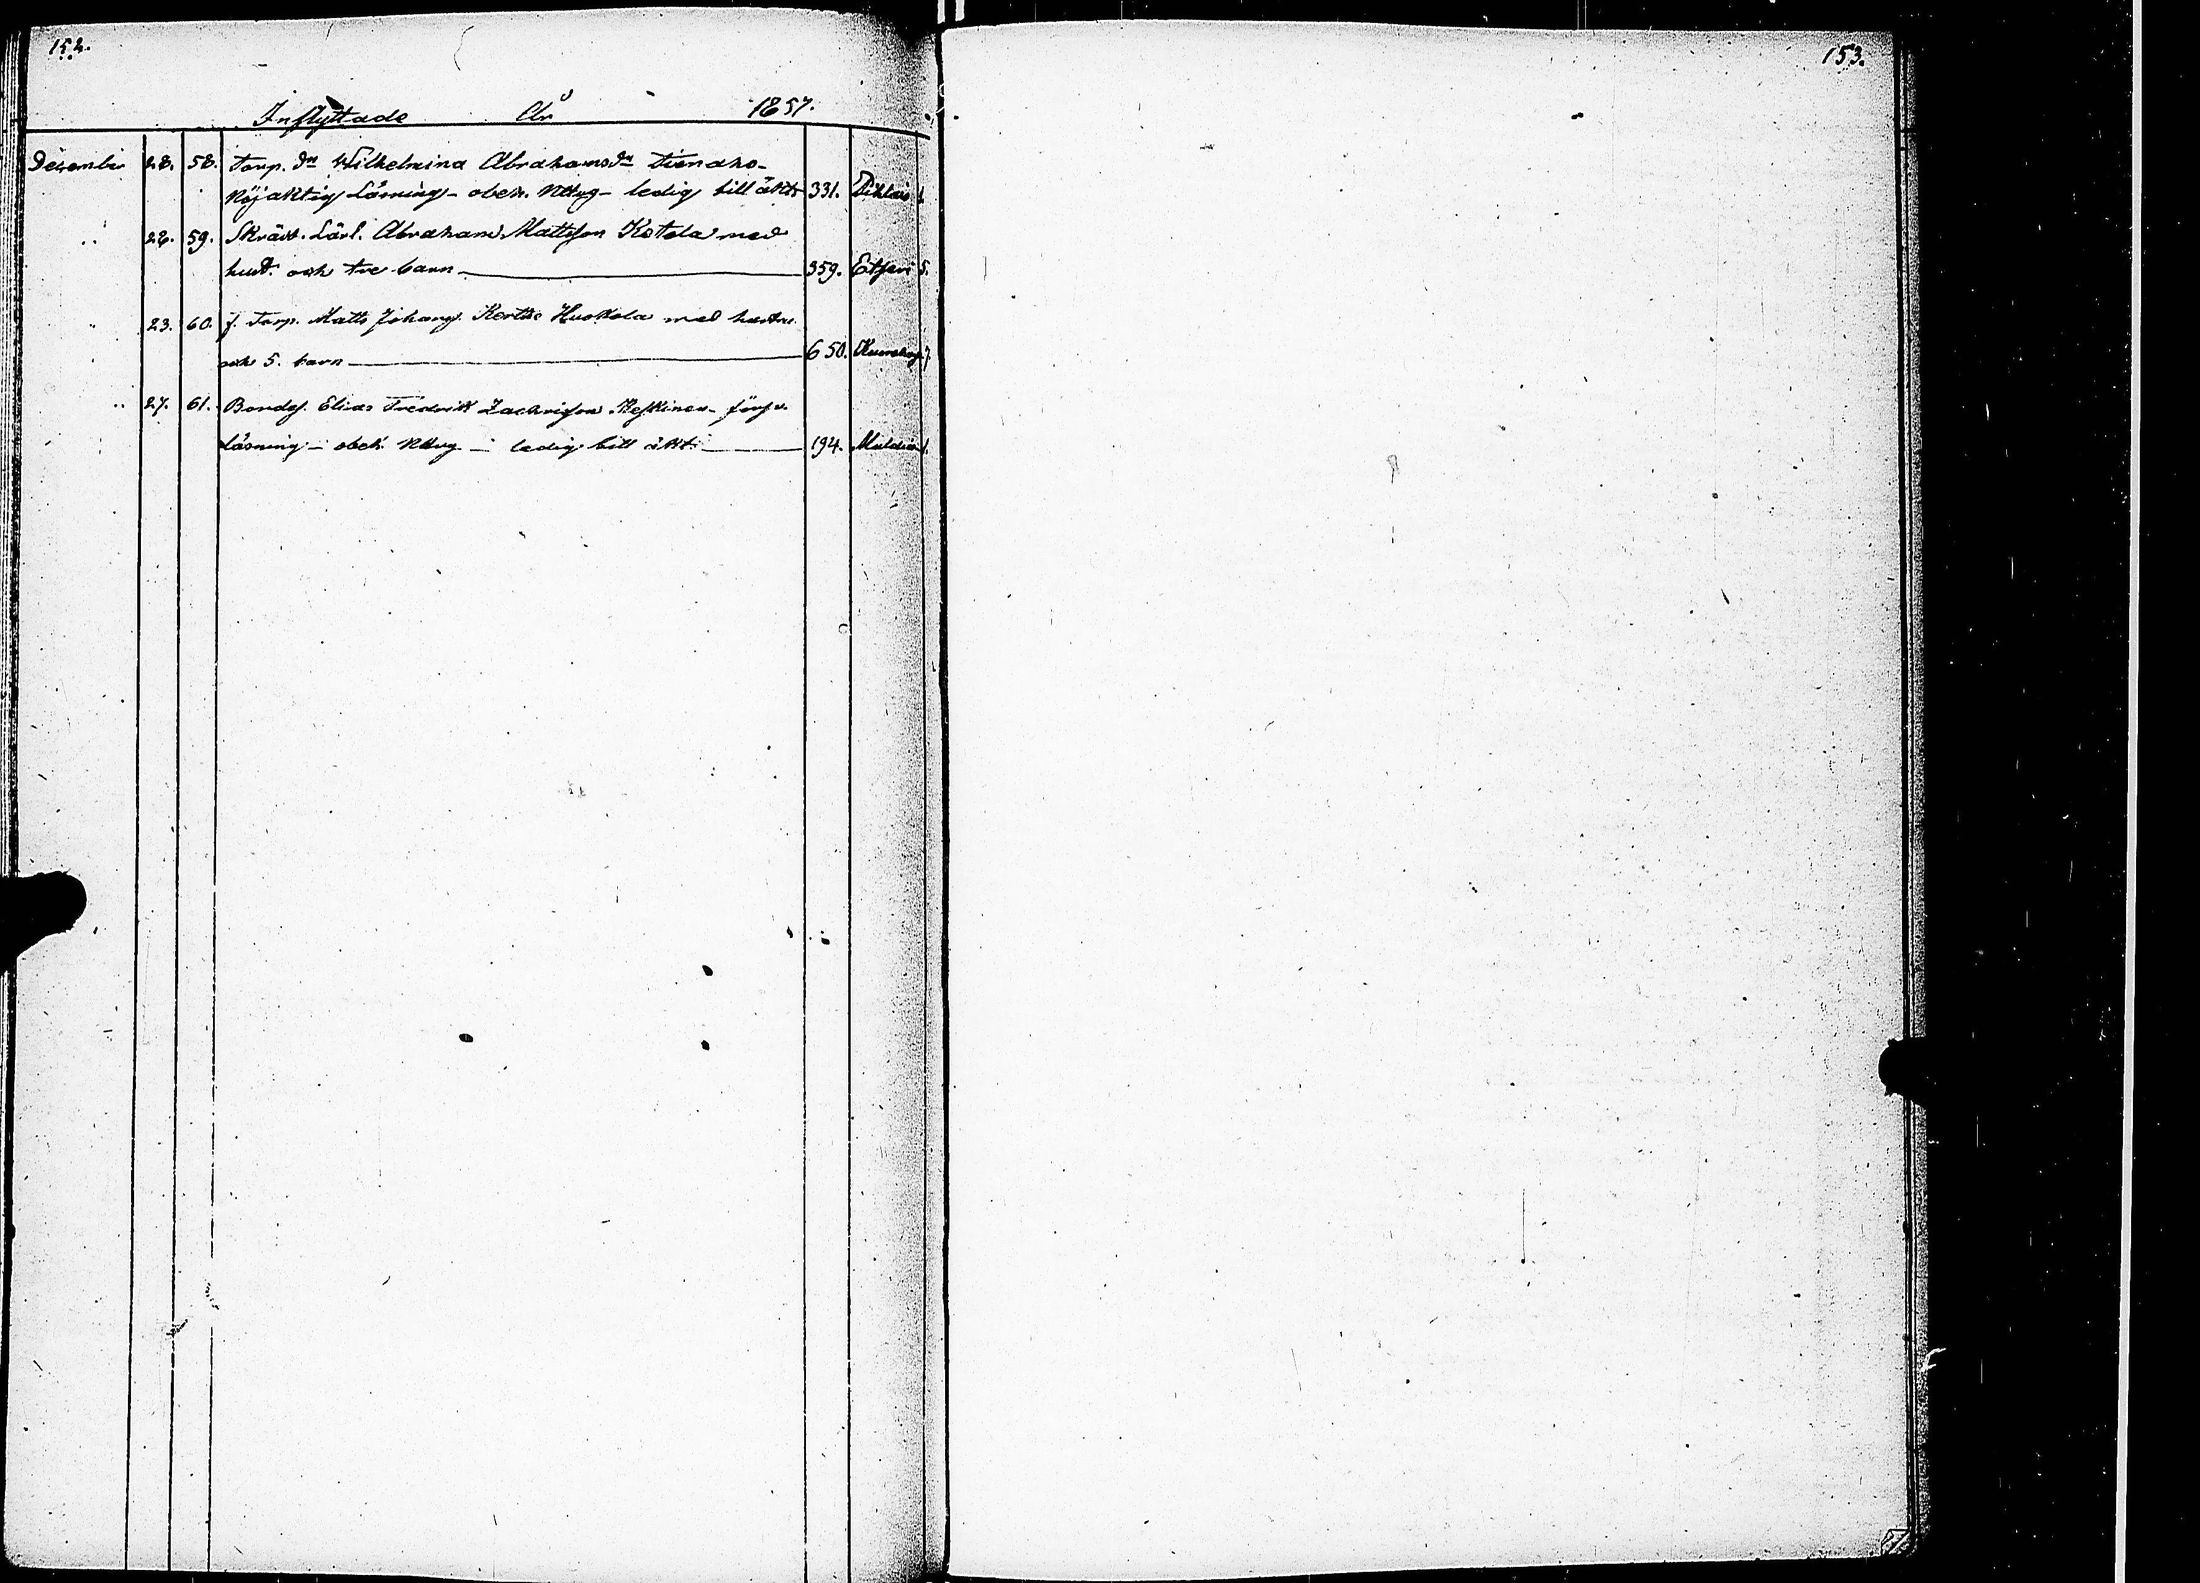 152.
153.
Inflyttade År 1857.
December 28. 58. Torp. dn Wilhelmina Abrahamsdn
Nöjaktig Läsning - obeh. Nttvg - ledig till äkt. 331. 1.
" 28. 59. Skrädd. Lärl. Abraham Mattsson Kotola med
hust. och tre barn 359. Etseri 5.
" 23. 60. f. Torp. Matts Johans. Huokola med hustru
och 5. barn 650. 7.
" 27. 61. Bondes. Elias Fredrik Zachrisson förs.
Läsning - obeh. Nttvg - ledig till äkt. 194. Multia 1.